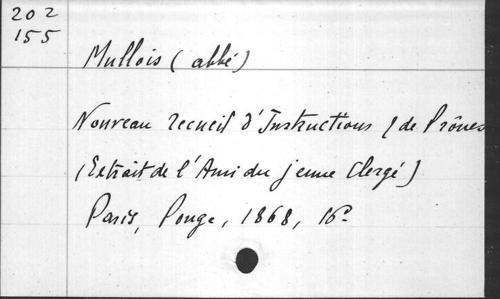 202
155
Mullois (abbé)
Nouveau recueil d'Instructions & de Prônes
(Extrait de l'Ami du jeune Clergé)
Paris, Pouge, 1868, 16º